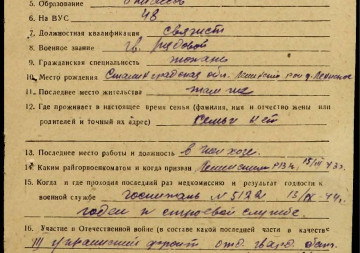 5. Образование
6. На ВУС 48
7. Должностная квалификация связист
8. Военное звание гв. рядовой
9. Гражданская специальность
10. Место рождения Сталинградская обл. Ленинский р-он
11. Последнее место жительства там же
12. Где проживает в настоящее время семья (фамилия, имя и отчество жены или
родителей и точный их адрес) семьи нет
13. Последнее место работы и должность в колхозе.
14. Каким райгорвоенкоматом и когда призван Ленинским РВК
15. Когда и где проходил последний раз медкомиссию и результат годности к
военной службе госпиталь № 5122
годен к строевой службе.
16. Участие в Отечественной войне (в составе какой последней части в качестве
III украинский фронт отд. гвард.